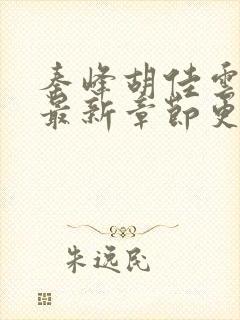 秦峰胡佳雲
最新章節更
朱远民